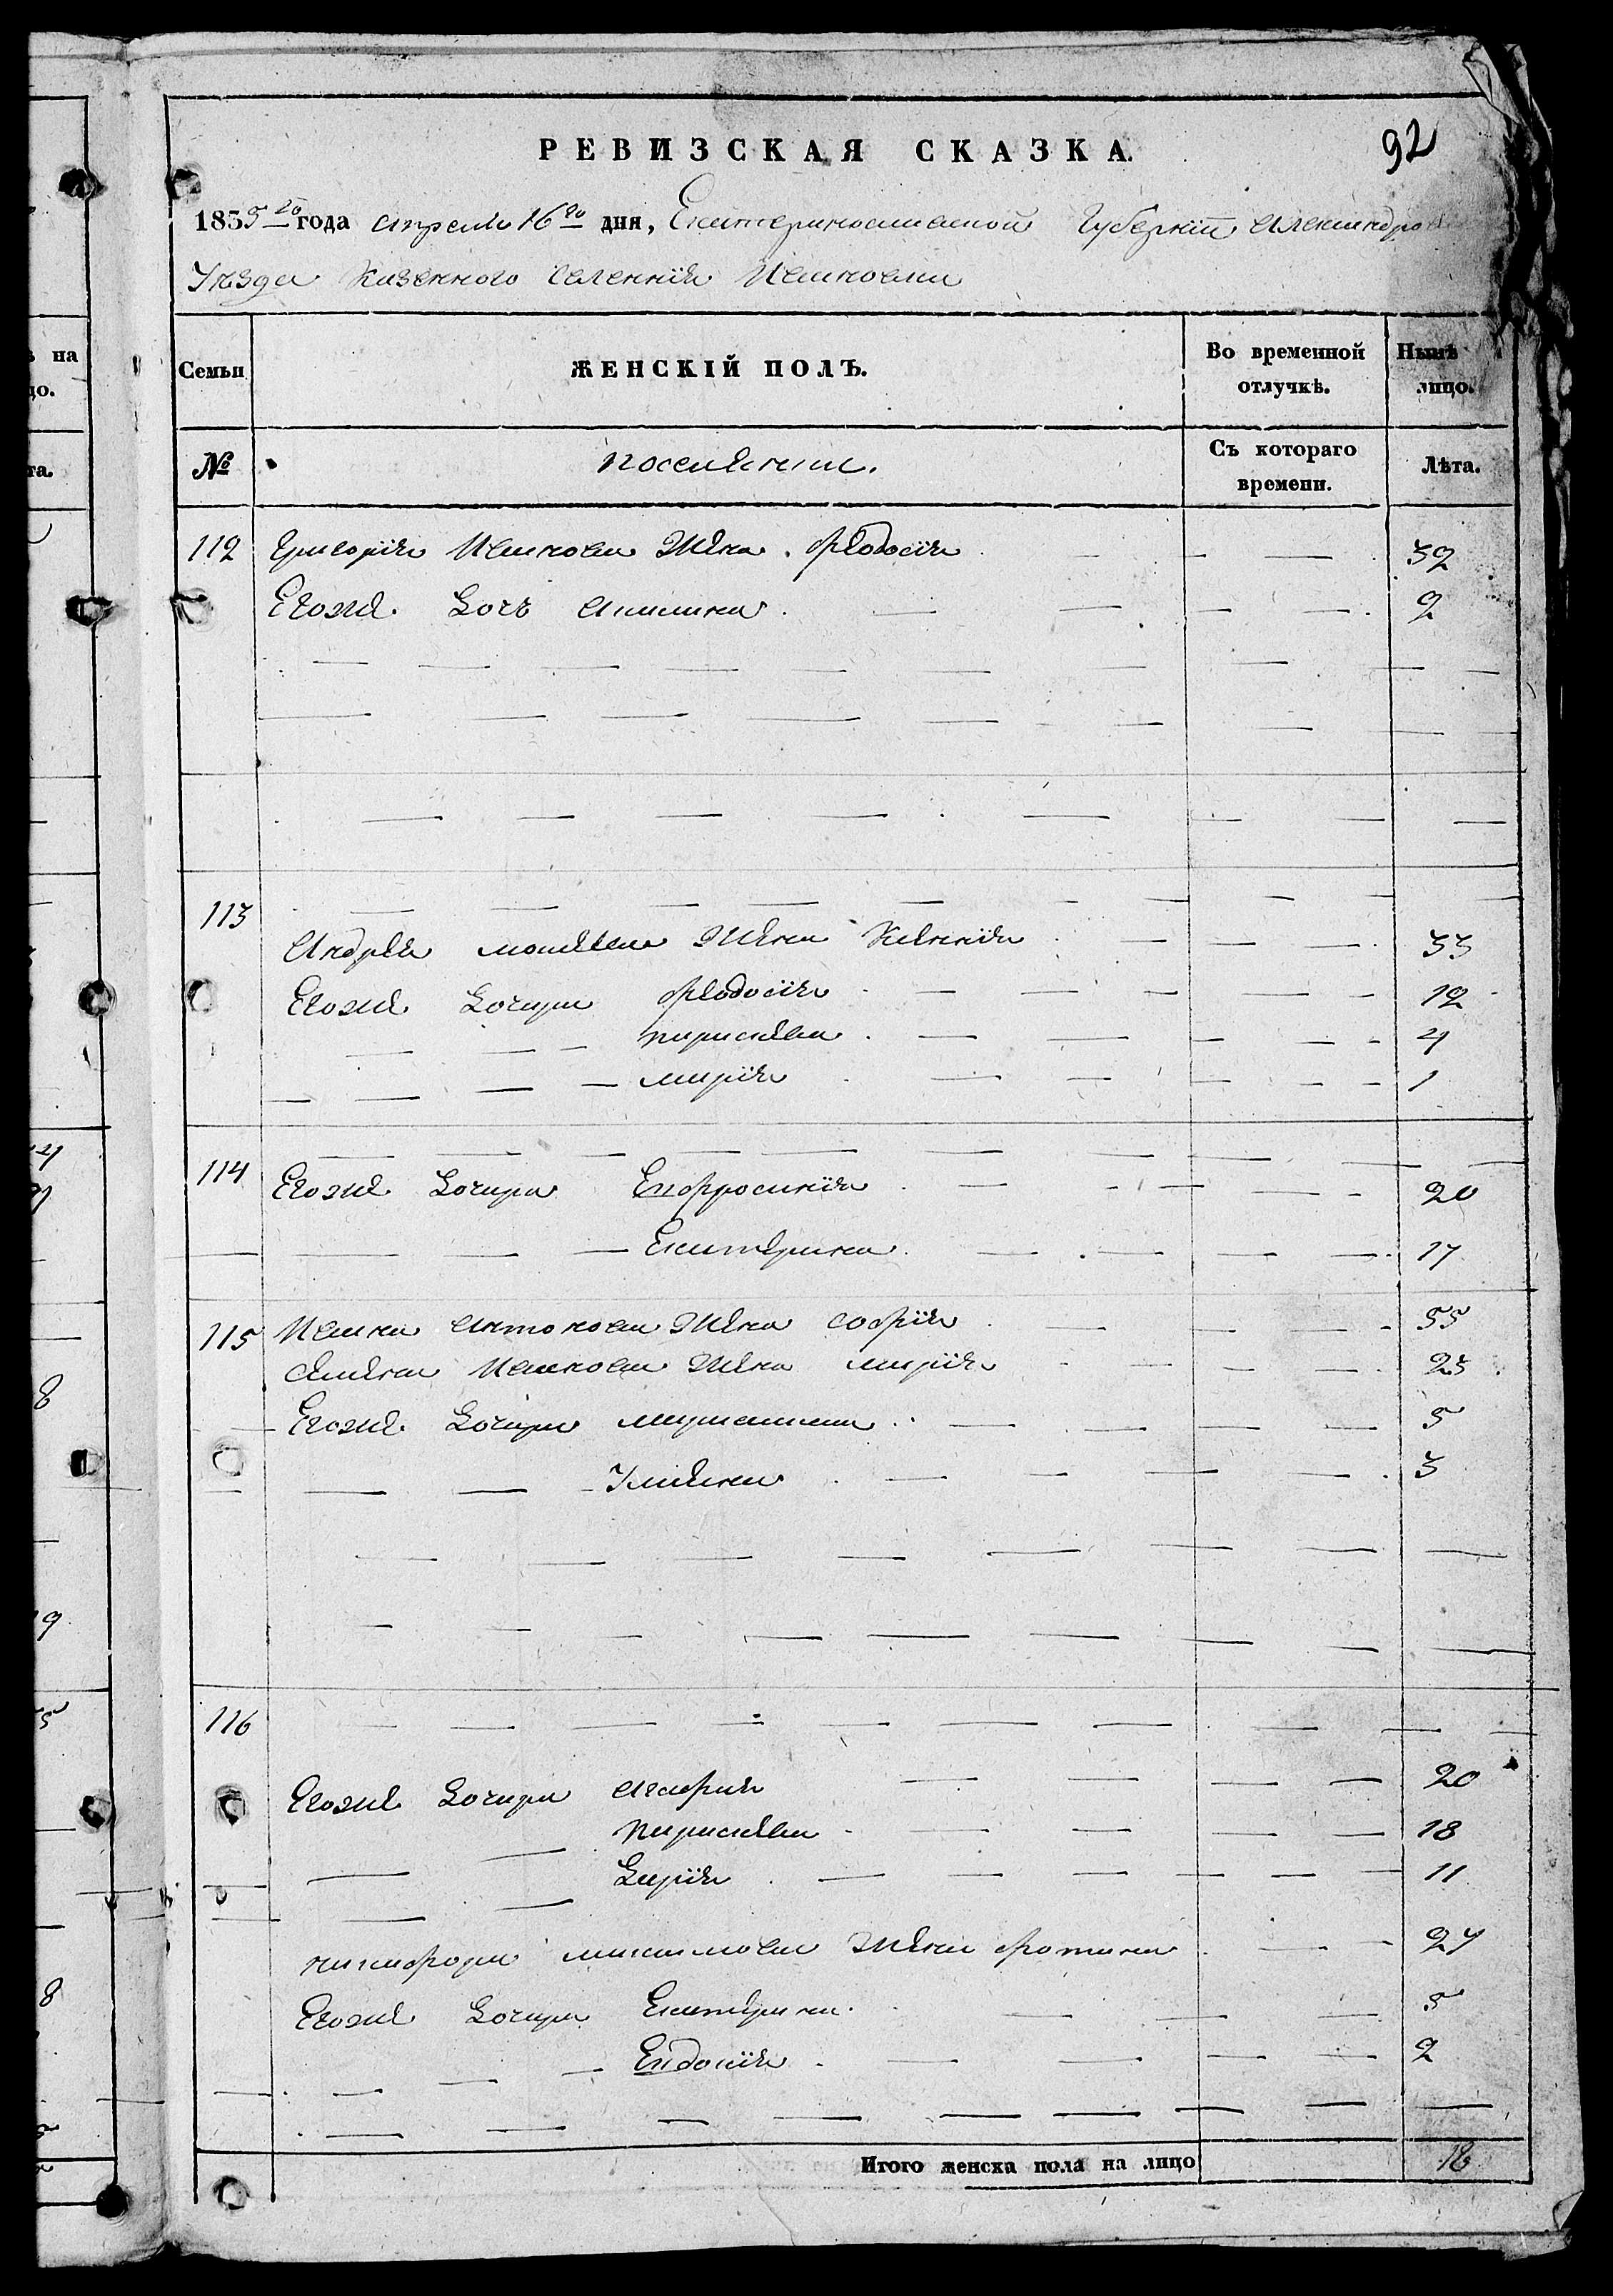 92
РЕВИЗСКАЯ СКАЗКА.
1835 го года апреля 16 го дня, Екатеринославской Губернїи Александров
Уезда Казенного Селенїя Ивановки
Семьи
ЖЕНСКІЙ ПОЛЪ.
Во временной отлучкѣ.
Нынѣ лицо.
№
Поселянки.
Съ котораго времени.
Лѣта.
112 Григорїя Иванова Жена Феодосїя 32
Егоже Дочь Акилина 2
113
Андрея Жена Ксенїя 33
Егоже Дочери Феодосїя 12
Параскева 4
Марїя 1
114 Егоже Дочери Евфросинїя 20
Екатерина 17
115 Ивана Антонова Жена Софїя 55
Семена Иванова Жена Марїя 23
Егоже Дочери 5
Ульяна 3
116
Егоже Дочери Агафия 20
Параскева 18
Дарїя 11
Никифора Максимова Жена Фотина 27
Егоже Дочери Екатерина 5
Евдокїя 2
Итого женска пола на лицо 18